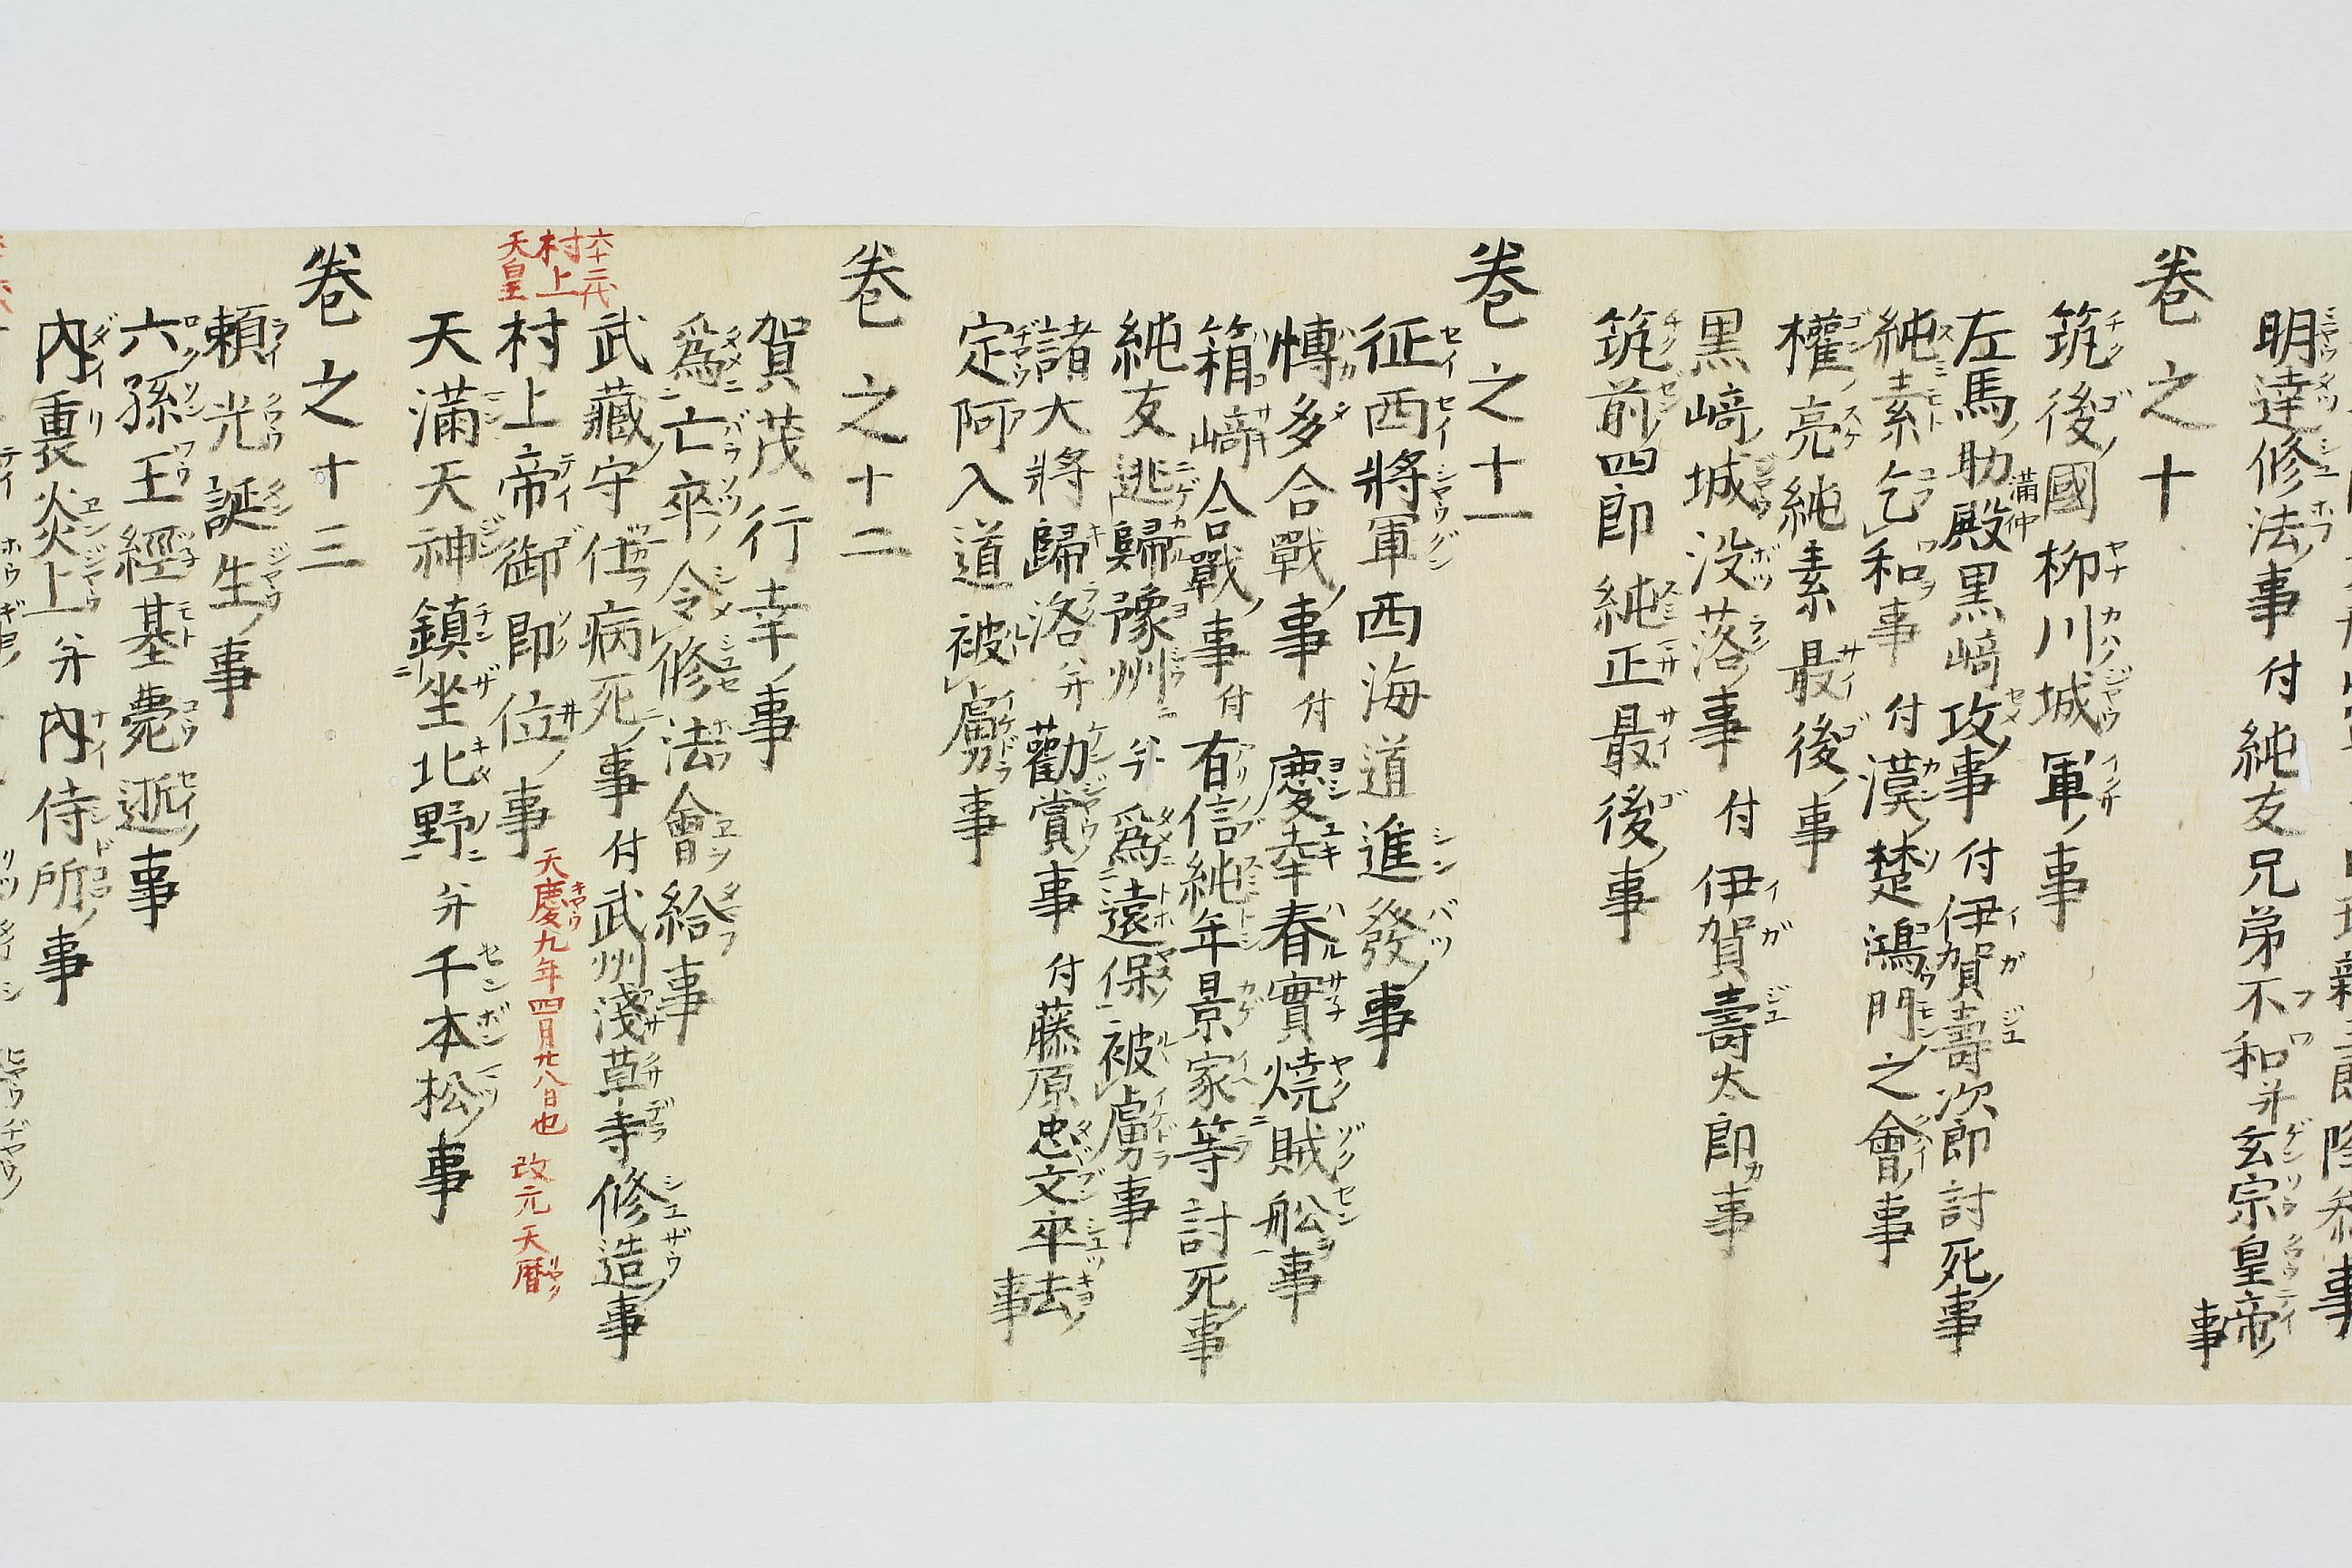 明達修法事 付 純友兄弟不和 并 玄宗皇帝事
巻之十
筑後國柳川城軍事
左馬助殿 満仲 黒﨑攻事 付 伊賀壽次郎討死事
純素乞和事 付 漢楚鴻門之會事
權亮純素最後事
黒﨑城没落事 付 伊賀壽太郎事
筑前四郎純正最後事
巻之十一
征西將軍西海道進發事
博多合戰事 付 慶幸春實燒賊舩事
箱﨑合戰事 付 有信純年景家等討死事
純友逃歸豫州 并 爲遠保被虜事
諸大將歸洛 并 勸賞事 付 藤原忠文卒去事
定阿入道被虜事
巻之十二
賀茂行幸事
爲亡卒令修法會給事
武藏守仕病死事 付 武州淺草寺修造事
六十二代村上天皇
村上帝御即位事 天慶九年四月廿八日也 改元天暦
天滿天神鎮坐北野 并 千本松事
巻之十三
頼光誕生事
六孫王經基薨逝事
内裏炎上 并 内侍所事